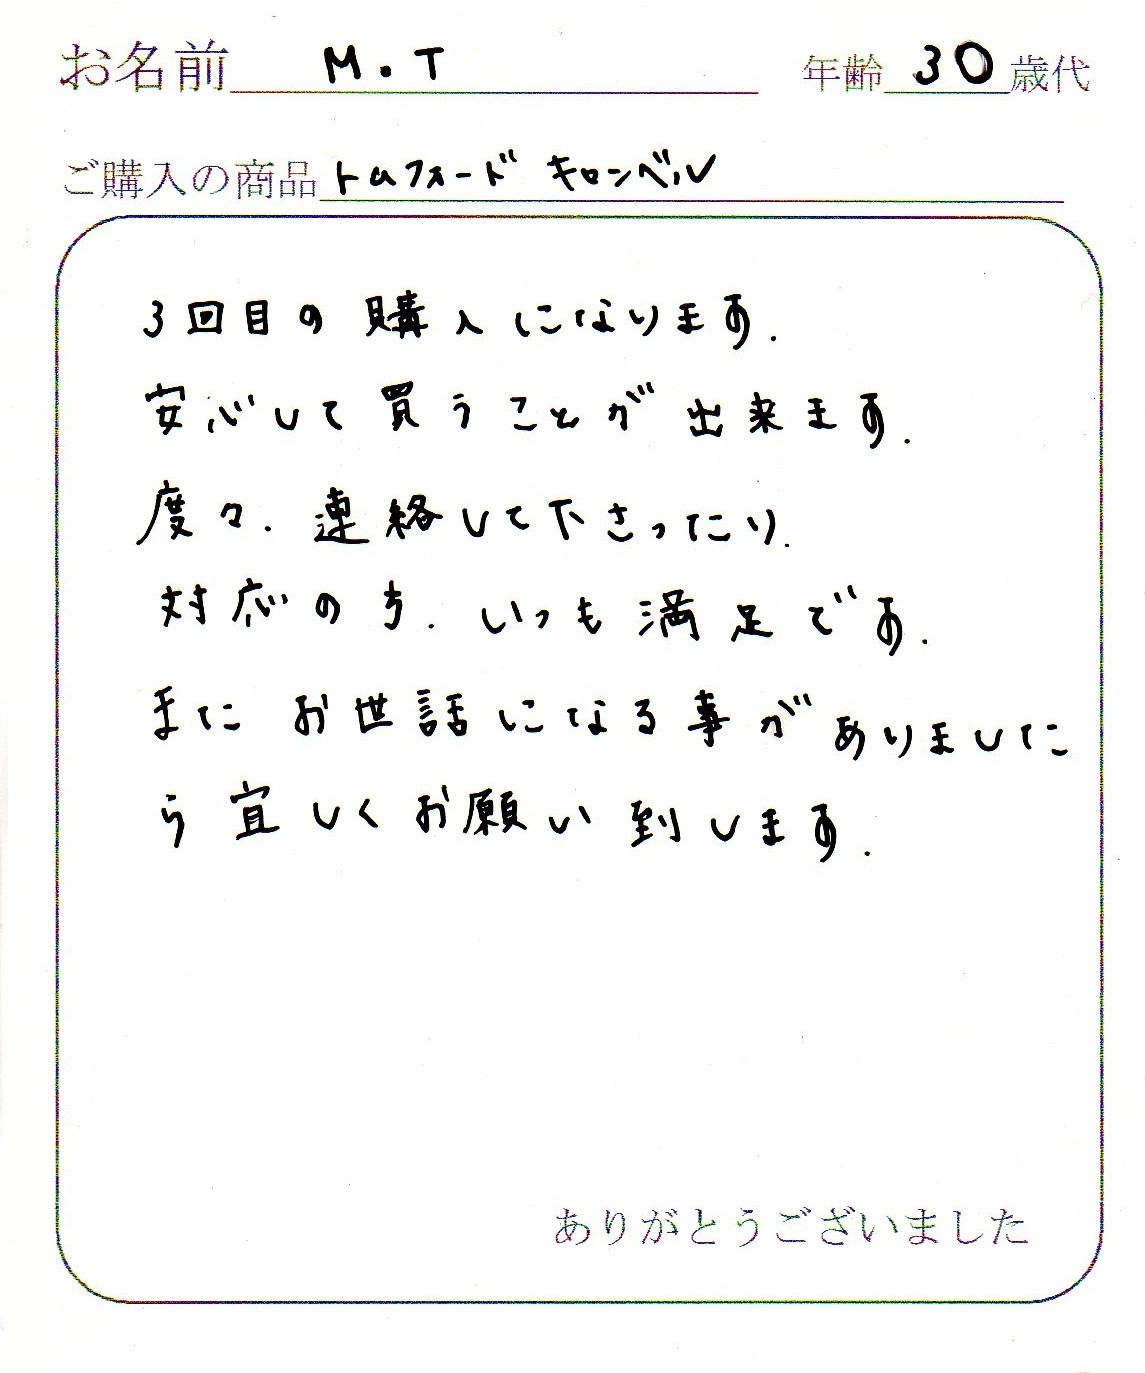 お名前 M.T 年齢 30 歳代
ご購入の商品 トムフォード キャンベル
3回目の購入になります.
安心して買うことが出来ます.
度々.連絡して下さったり.
対応の方.いつも満足です.
またお世話になる事がありました
ら宜しくお願い到します.
ありがとうございました